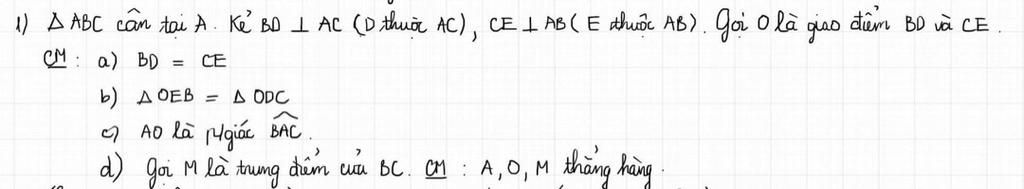 1) △ ABC cân tại A. Kẻ BD ⊥ AC (D thuộc AC), CE ⊥ AB ( E thuộc AB). Gọi O là giao điểm BD và CE.
CM : a) BD = CE
b) △ OEB = △ ODC
c) AO là p/giác \widehat{BAC}.
d) Gọi M là trung điểm của BC. CM : A, O, M thẳng hàng.